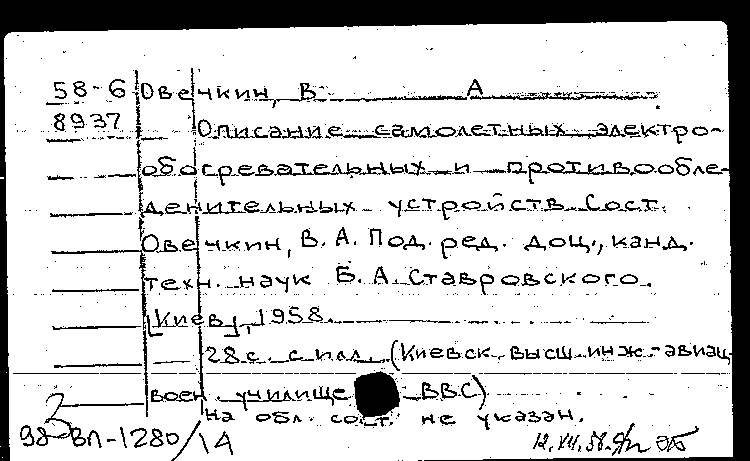 58-6 Овечкин, В А
8937 Описание самолетных электро-
обогревательных и противообле-
денительных устройств Сост.
Овечкин, В. А. Под. ред. доц., канд.
техн. наук Б. А. Ставровского.
[Киев], 1958.
28 с. с илл. (Киевск. высш. инж.-авиац.
воен училище ВВС)
На обл. сост. не указан.
98 ВЛ-1280/14